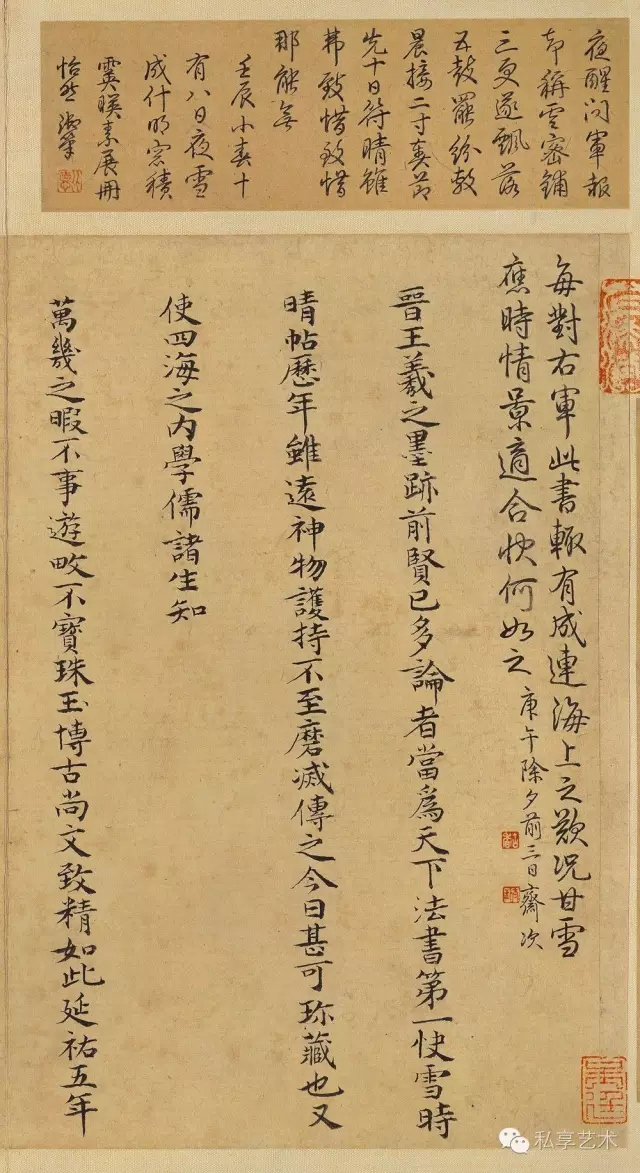 夜醒问軍報
却稱雲密鋪
三更遂飄落
五鼓罷紛敷
晨接二寸奏節
先十日符晴雖
弗致惜致惜
那能無
壬辰小春十
有八日夜雪
成什明窓積
霙暎素展冊
怡然 御筆
每對右軍此書輙有成連海上之歎況甘雪
應時情景適合快何如之 庚午除夕前三日齋次
晉王羲之墨跡前賢已多論者當爲天下法書第一快雪時
晴帖歷年雖遠神物護持不至磨滅傳之今日甚可珎藏也又
使四海之内學儒諸生知
萬幾之暇不事遊畋不寶珠玉博古尚文致精如此延祐五年
私享艺术